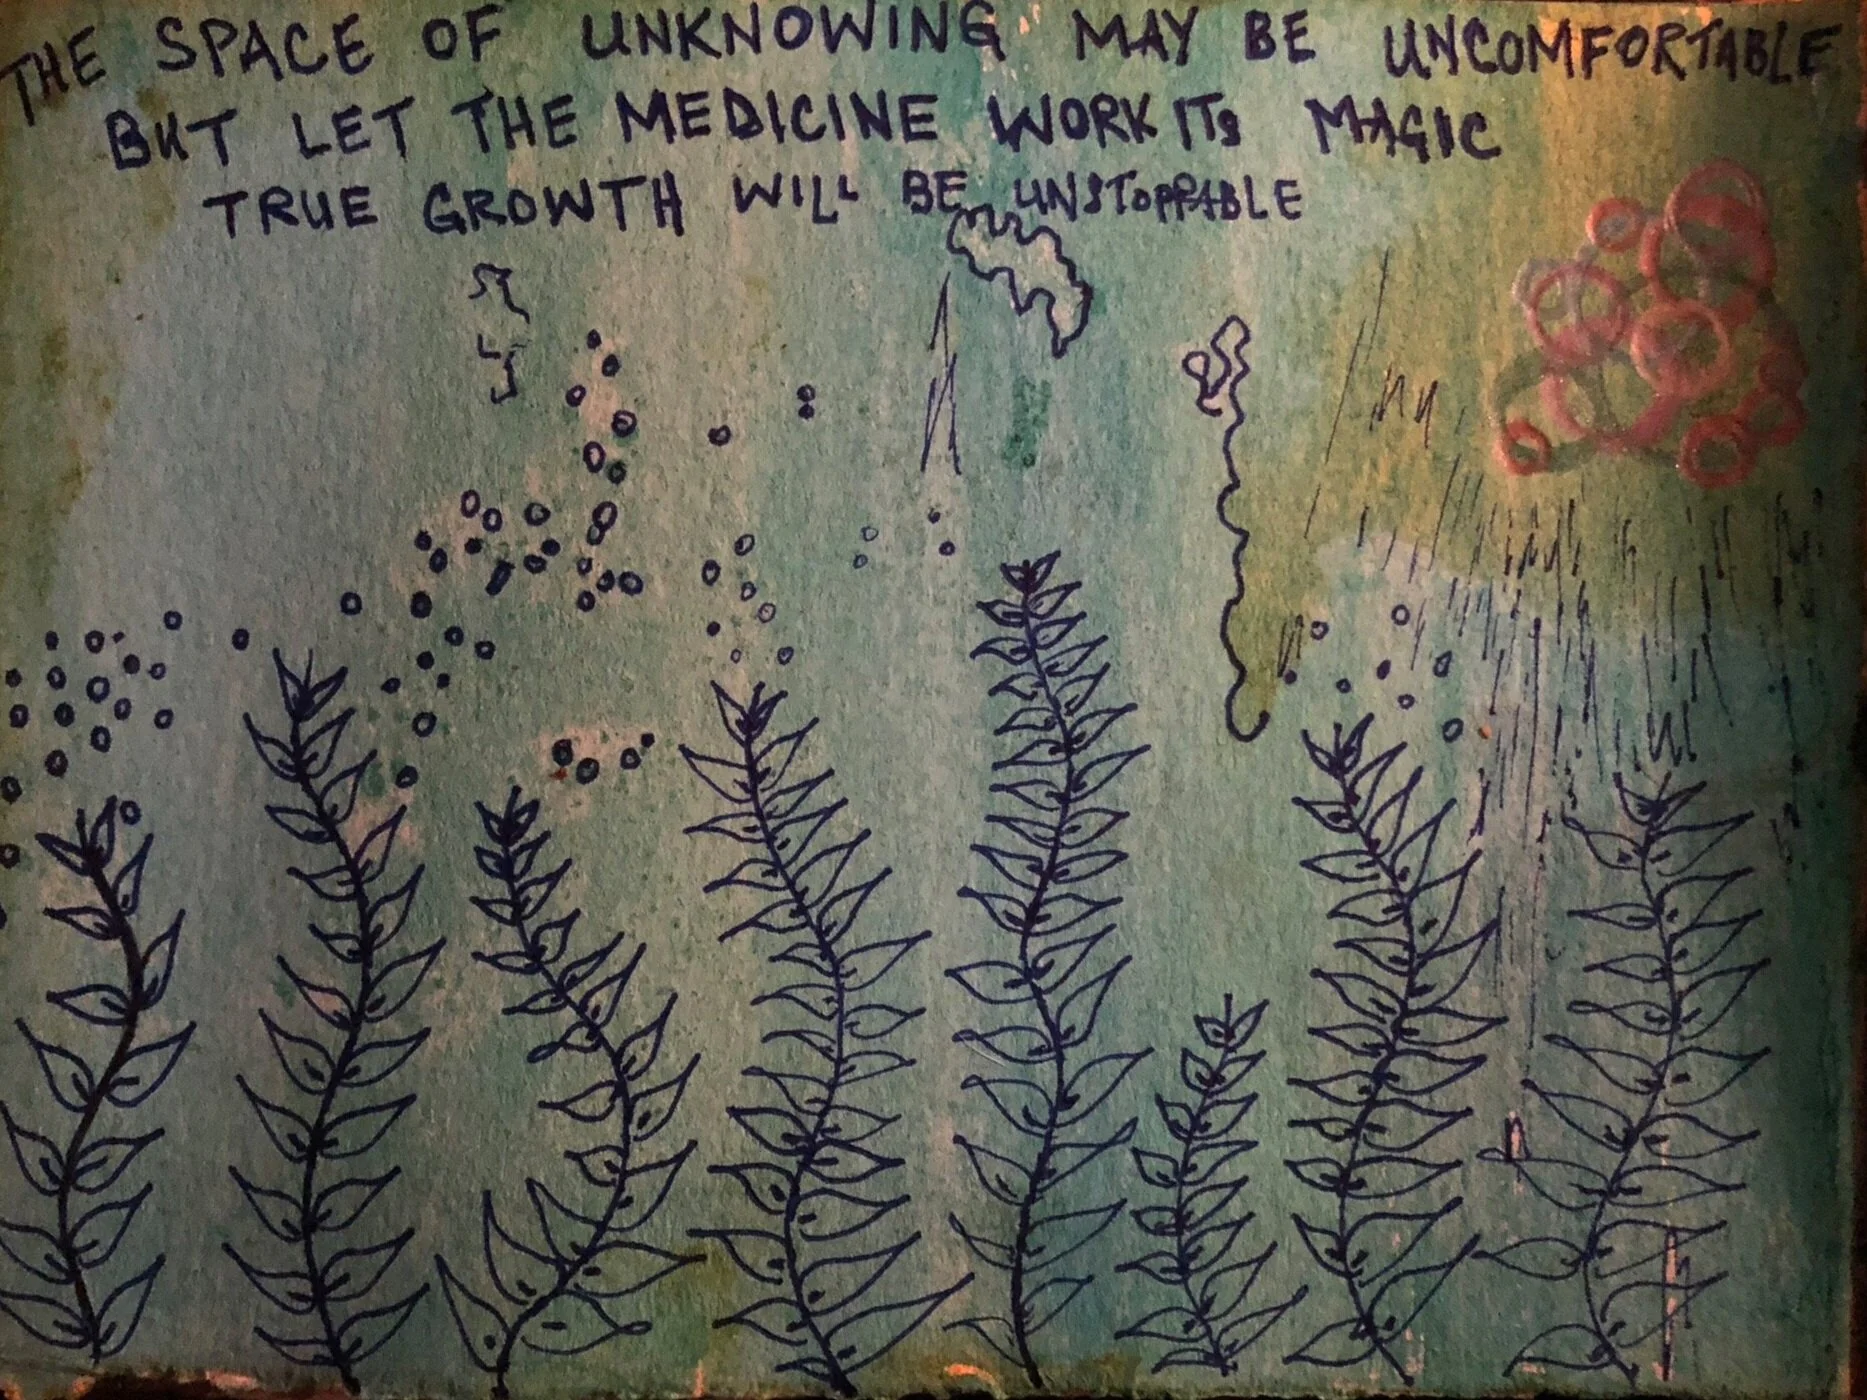 THE SPACE OF UNKNOWING MAY BE UNCOMFORTABLE
BUT LET THE MEDICINE WORK ITS MAGIC
TRUE GROWTH WILL BE UNSTOPPABLE